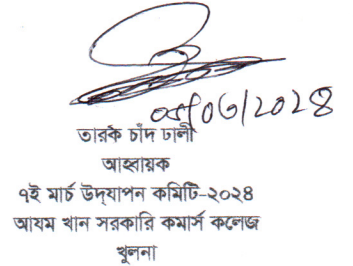 ০৫/০৩/২০২৪
তারক চাঁদ ঢালী
আহ্বায়ক
৭ই মার্চ উদ্‌যাপন কমিটি-২০২৪
আযম খান সরকারি কমার্স কলেজ
খুলনা